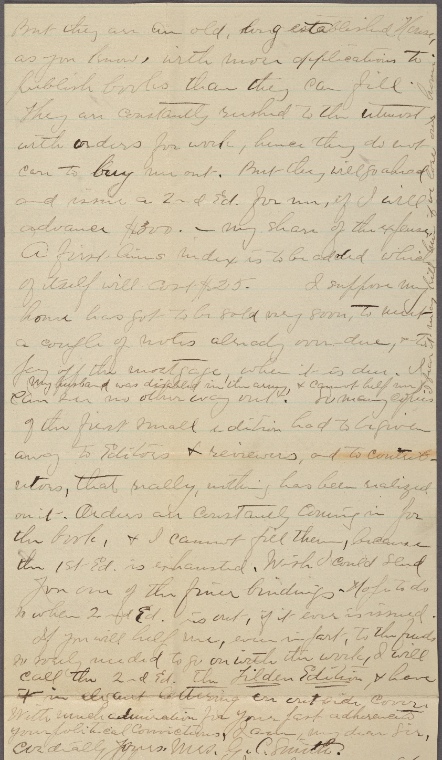 But they are an old, long established House,
as you know, with more applications to
publish books than they can fill.
They are constantly rushed to the utmost
with orders for work, hence they do not
care to buy me out. But they will go ahead
and issue a 2nd Ed. for me, if I will
advance $300. – my share of the expense.
A first lines index is to be added which
of itself will cost $125. I suppose my
home has got to be sold very soon, to meet
a couple of notes already over-due, & to
pay off the mortgage, when it is due. I
My husband was disabled in the army, & cannot help me
can see no other way out. So many copies
of the first small edition had to be given
away to Editors & reviewers, and to contrib-
utors, that really, nothing has been realized
on it. Orders are constantly coming in for
the book, & I cannot fill them, because
the 1st Ed. is exhausted. Wish I could send
you one of the finer bindings. Hope to do
so when 2nd Ed. is out, if it ever is issued.
If you will help me, even in part, to the funds
so sorely needed to go on with the work, I will
call the 2nd Ed. the Tilden Edition, & have
it in elegant lettering on outside cover.
With much admiration for your past adherence
your political convictions, I am, my dear Sir,
Cordially Yours, Mrs. G. C. Smith.